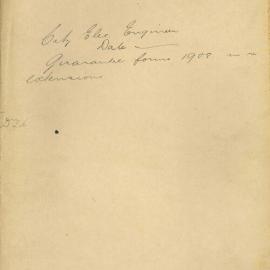 City Elec Engineer
Date
Guarantee forms 1908
extensions